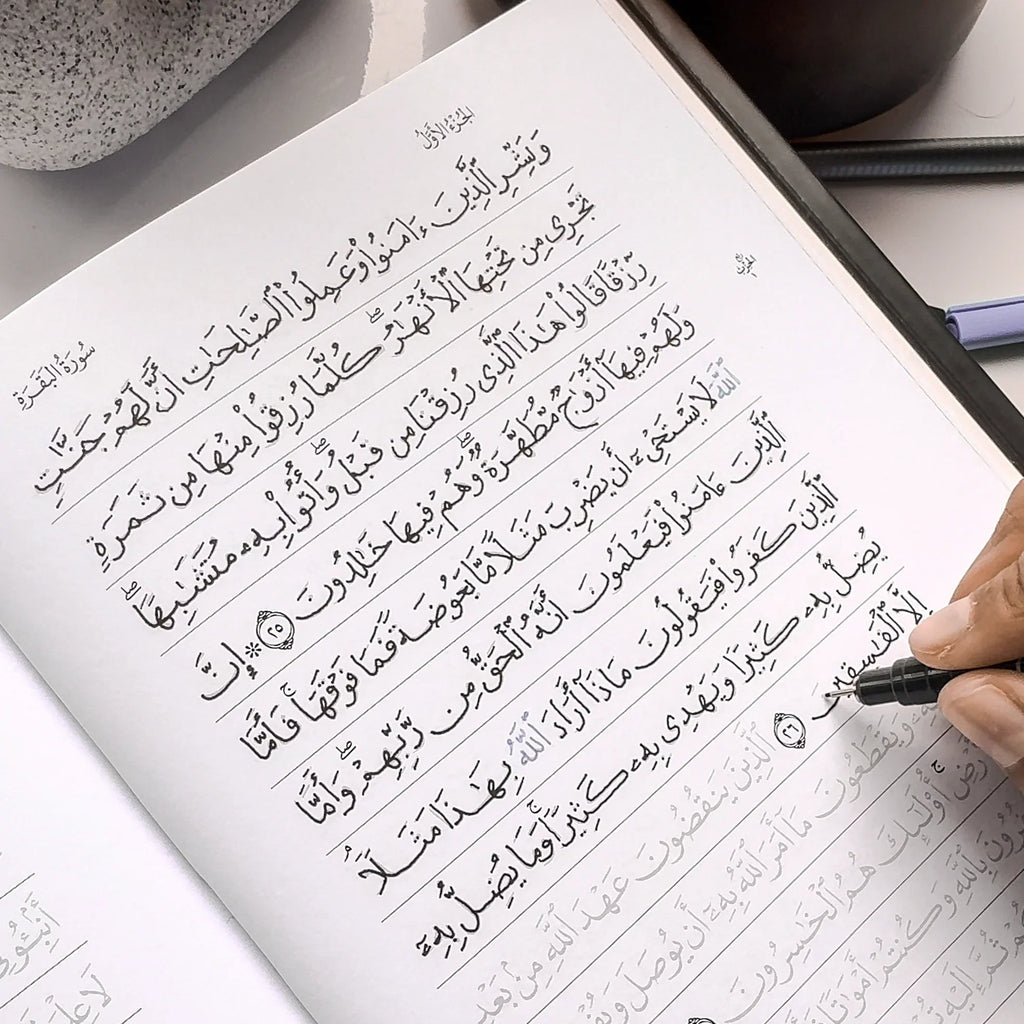 الجزء الأول
سورة البقرة
وَبَشِّرِ ٱلَّذِينَ ءَامَنُوا۟ وَعَمِلُوا۟ ٱلصَّـٰلِحَـٰتِ أَنَّ لَهُمْ جَنَّـٰتٍ
تَجْرِى مِن تَحْتِهَا ٱلْأَنْهَـٰرُ ۖ كُلَّمَا رُزِقُوا۟ مِنْهَا مِن ثَمَرَةٍ
رِّزْقًا قَالُوا۟ هَـٰذَا ٱلَّذِى رُزِقْنَا مِن قَبْلُ ۖ وَأُتُوا۟ بِهِۦ مُتَشَـٰبِهًا ۖ
وَلَهُمْ فِيهَآ أَزْوَٰجٌ مُّطَهَّرَةٌ ۖ وَهُمْ فِيهَا خَـٰلِدُونَ ٢٥ ۞ إِنَّ
ٱللَّهَ لَا يَسْتَحْىِۦٓ أَن يَضْرِبَ مَثَلًا مَّا بَعُوضَةً فَمَا فَوْقَهَا ۚ فَأَمَّا
ٱلَّذِينَ ءَامَنُوا۟ فَيَعْلَمُونَ أَنَّهُ ٱلْحَقُّ مِن رَّبِّهِمْ ۖ وَأَمَّا
ٱلَّذِينَ كَفَرُوا۟ فَيَقُولُونَ مَاذَآ أَرَادَ ٱللَّهُ بِهَـٰذَا مَثَلًا ۘ
يُضِلُّ بِهِۦ كَثِيرًا وَيَهْدِى بِهِۦ كَثِيرًا ۚ وَمَا يُضِلُّ بِهِۦٓ
إِلَّا ٱلْفَـٰسِقِينَ ٢٦ ٱلَّذِينَ يَنقُضُونَ عَهْدَ ٱللَّهِ مِنۢ بَعْدِ
وَيَقْطَعُونَ مَآ أَمَرَ ٱللَّهُ بِهِۦٓ أَن يُوصَلَ
ۚ أُو۟لَـٰٓئِكَ هُمُ ٱلْخَـٰسِرُونَ
بِٱللَّهِ وَكُنتُمْ أَمْوَٰتًا
ثُمَّ إِلَيْهِ